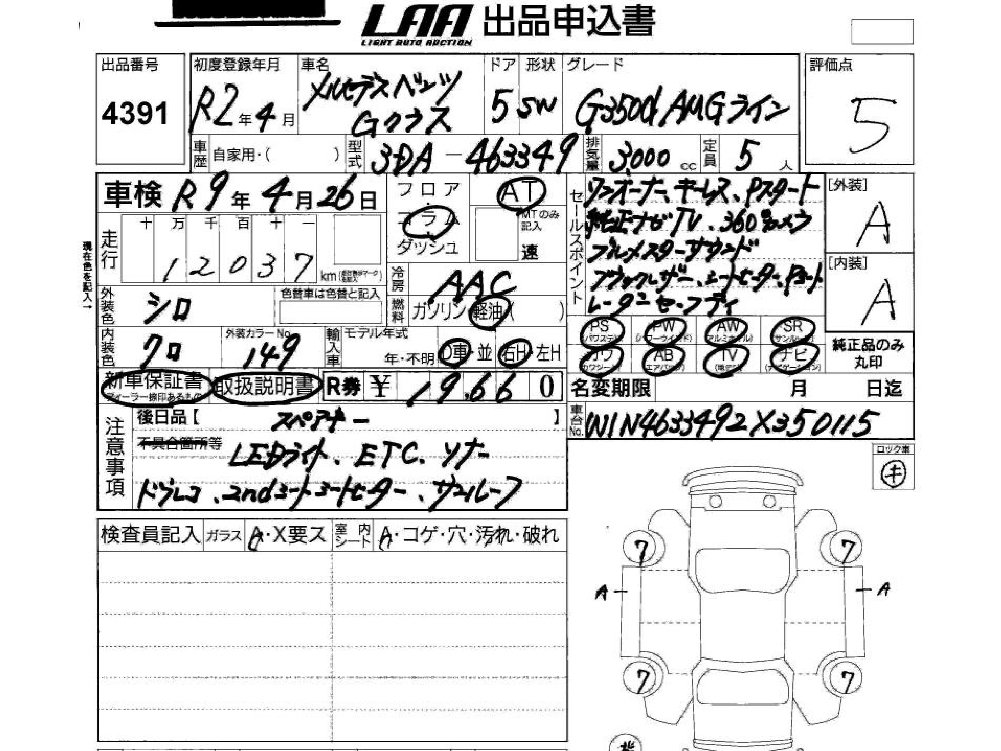 LAA 出品申込書
LIGHT AUTO AUCTION
出品番号
4391
初度登録年月
R2年4月
車名
メルセデスベンツ
Gクラス
ドア
5
形状
SW
グレード
G350d AMGライン
評価点
5
車歴
自家用・( )
型式
3DA-463349
排気量
3.000 cc
定員
5人
車検 R9年4月26日
フロア
コラム
ダッシュ
AT
MTのみ記入
速
セールスポイント
ワンオーナー、キーレス、Pスタート
純正ナビTV、360°カメラ
ブルメスターサウンド
ブラックレザー、シートヒーター、Pシート
レーダーセーフティ
[外装]
A
[内装]
A
現在色を記入→
走行
十 万 千 百 十 一
1 2 0 3 7
km
冷房
AAC
外装色
シロ
色替車は色替と記入
燃料
ガソリン・軽油( )
内装色
クロ
外装カラーNo.
149
輸入車
モデル年式
年・不明
D車・並
右H・左H
PS
(パワステ)
PW
(パワーウィンド)
AW
(アルミホイル)
SR
(サンルーフ)
カワ
(カワシート)
AB
(エアバック)
TV
ナビ
(ナビゲーション)
純正品のみ
丸印
新車保証書
取扱説明書
R券 ¥ 19.660
名変期限 月 日迄
車台No.
W1N4633492X350115
注意事項
後日品【 スペアキー 】
不具合箇所等
LEDライト、ETC、ソナー
ドラレコ、2ndシートシートヒーター、サンルーフ
ロック車
キ
検査員記入
ガラス
A・X要ス
室内シート
A・コゲ・穴・汚れ・破れ
7
7
A
A
7
7